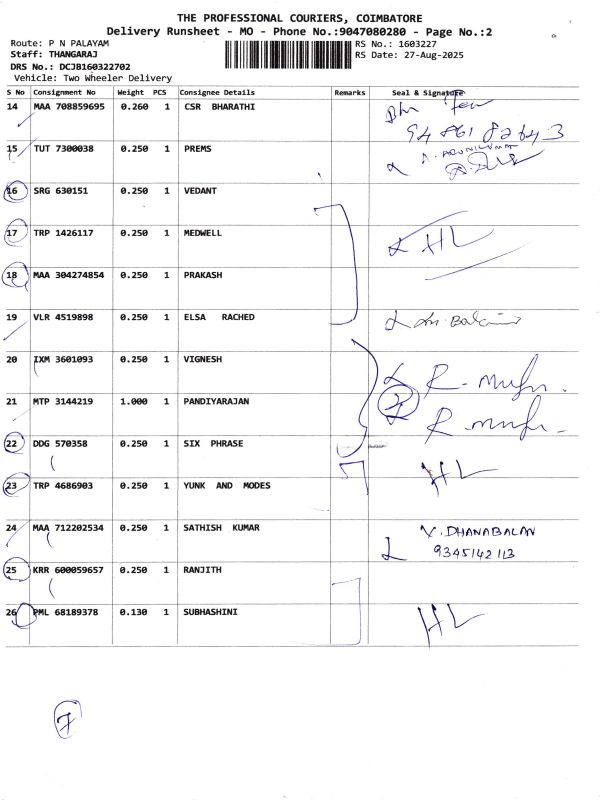 THE PROFESSIONAL COURIERS, COIMBATORE
Delivery Runsheet - MO - Phone No.:9047080280 - Page No.:2
Route: P N PALAYAM RS No.: 1603227
Staff: THANGARAJ RS Date: 27-Aug-2025
DRS No.: DCJB160322702
Vehicle: Two Wheeler Delivery
S No Consignment No Weight PCS Consignee Details Remarks Seal & Signature
14 MAA 708859695 0.260 1 CSR BHARATHI
15 TUT 7300038 0.250 1 PREMS
16 SRG 630151 0.250 1 VEDANT
17 TRP 1426117 0.250 1 MEDWELL HL
18 MAA 304274854 0.250 1 PRAKASH
19 VLR 4519898 0.250 1 ELSA RACHED
20 IXM 3601093 0.250 1 VIGNESH
21 MTP 3144219 1.000 1 PANDIYARAJAN 2
22 DDG 570358 0.250 1 SIX PHRASE HL
23 TRP 4686903 0.250 1 YUNK AND MODES
24 MAA 712202534 0.250 1 SATHISH KUMAR V. DHANABALAN
9345142113
25 KRR 600059657 0.250 1 RANJITH
26 PML 68189378 0.130 1 SUBHASHINI HL
7